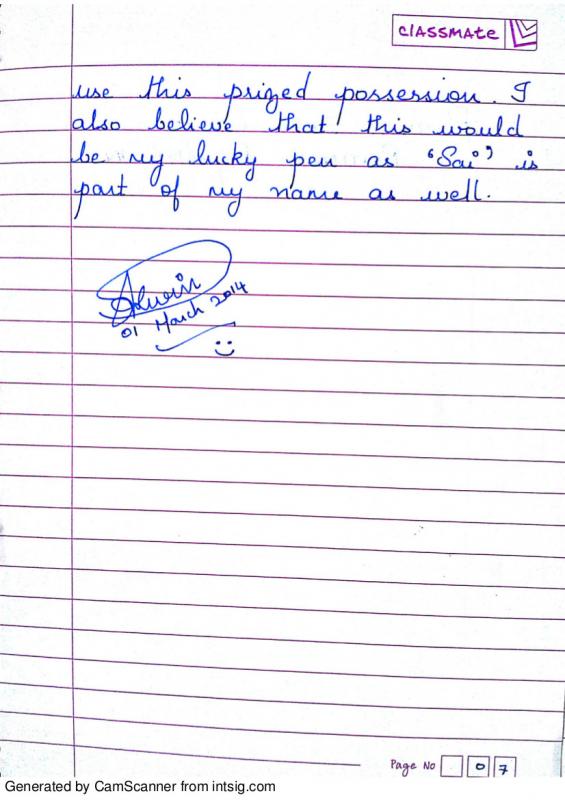 CLASSMATE
use this prized possession. I
also believe that this would
be my lucky pen as 'Sai' is
part of my name as well.
Alwin
01 March 2014
Page No 07
Generated by CamScanner from intsig.com